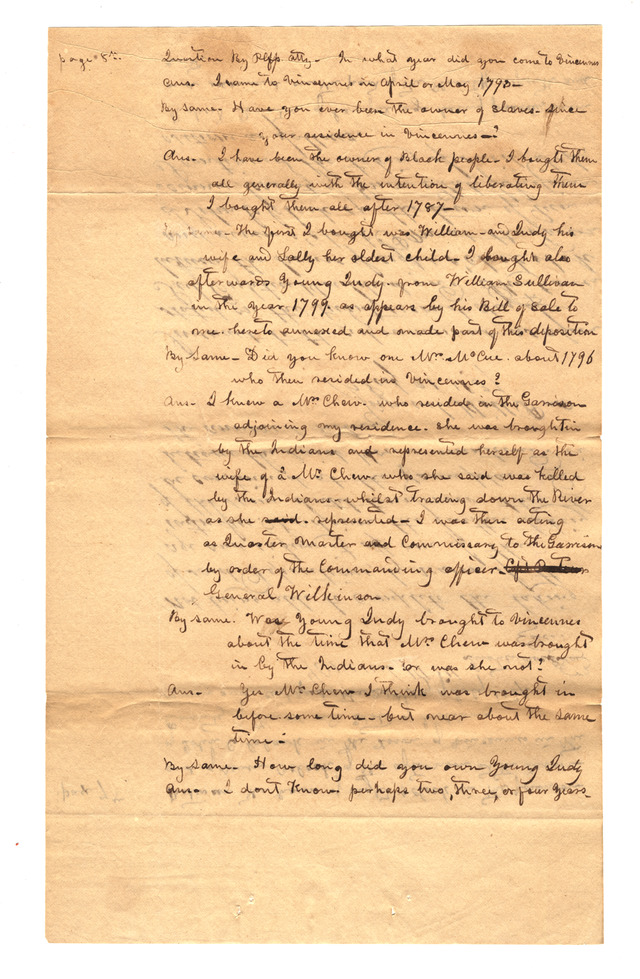 page 8th.
Question By Plffs atty - In what year did you come to Vincennes
Ans. I came to Vincennes in April or May 1793 -
By same - Have you ever been the owner of slaves - since
your residence in Vincennes - ?
Ans - I have been the owner of Black people - I bought them
all generally with the intention of liberating them
I bought them all after 1787 -
The first I bought was William - and Judy his
wife and Sally her oldest child - I bought also
afterwards Young Judy - from William Sullivan
in the year 1799. as appears by his Bill of sale to
me. hereto annexed and made part of this deposition
By Same - Did you know one Mrs. McCue. about 1796
who then resided in Vincennes ?
Ans - I knew a Mrs Chew. who resided in the Garrison
adjoining my residence. she was brought in
by the Indians and represented herself as the
wife of a Mr. Chew. who she said was killed
by the Indians - whilst trading down the River
as she said. represented - I was then acting
as Quarter Master and Commissary to the Garrison
by order of the Commanding officer -
General Wilkinson
By same. Was Young Judy brought to Vincennes
about the time that Mrs. Chew was brought
in by the Indians - or was she not ?
Ans - Yes Mrs. Chew I think was brought in
before some time - but near about the same
time -
By same - How long did you own Young Judy
Ans - I dont Know. perhaps two, three, or four Years -